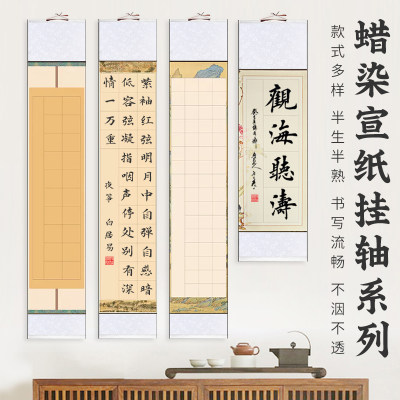 蜡染宣纸挂轴系列
款式多样 半生半熟 书写流畅 不洇不透
觀海聽濤
紫袖红弦明月中自弹自感暗
低容弦凝指咽声停处别有深
情一万重
夜筝 白居易